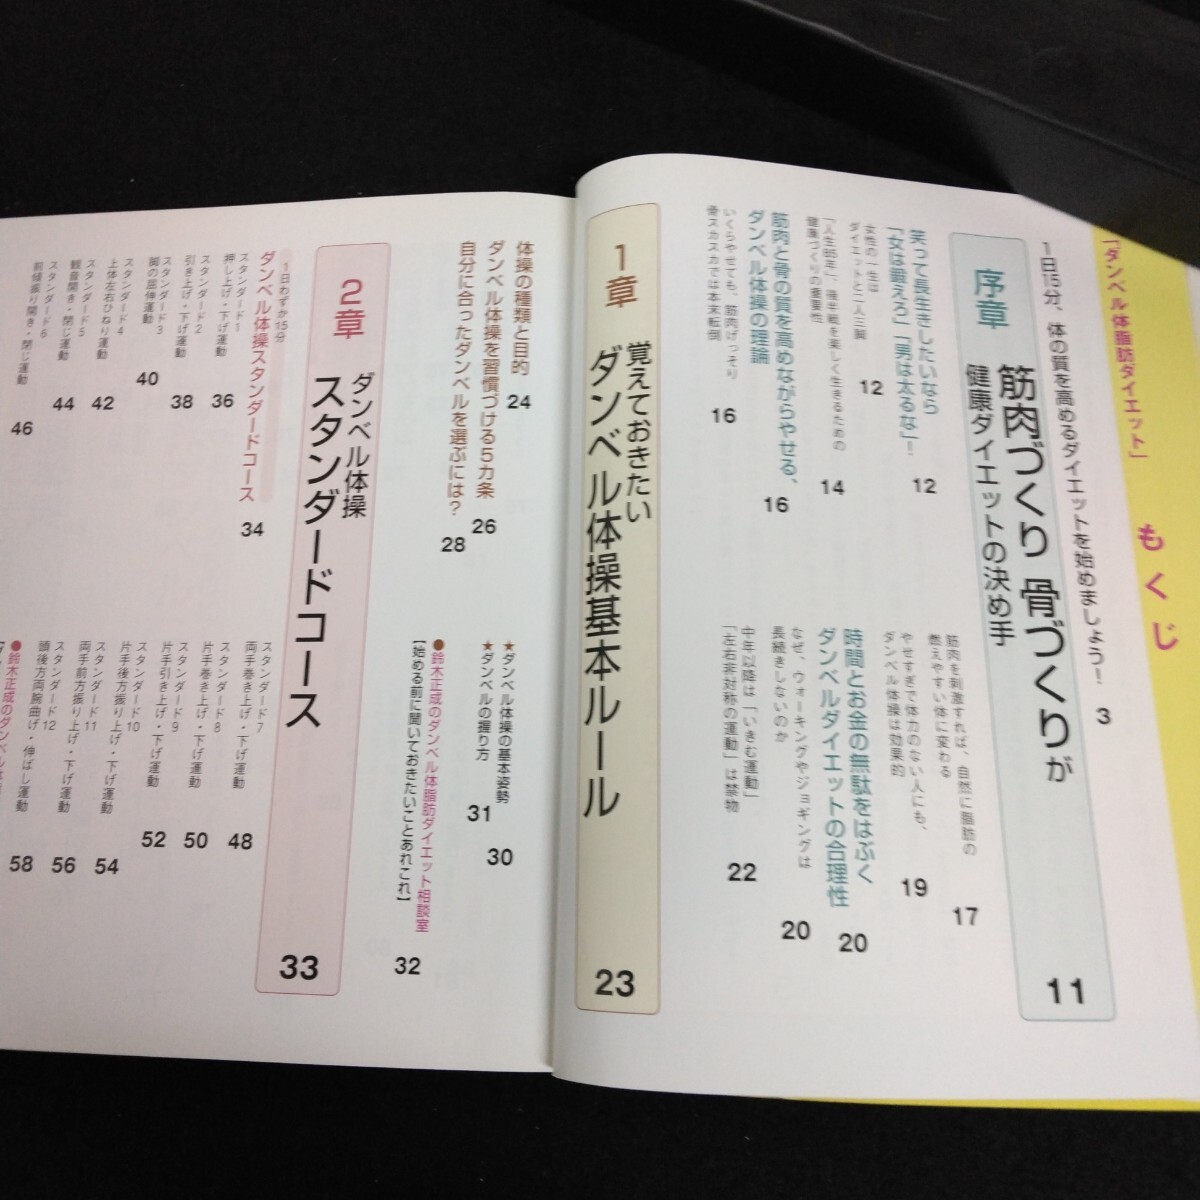 「ダンベル体脂肪ダイエット」
もくじ
1日15分、体の質を高めるダイエットを始めましょう! 3
序章
筋肉づくり 骨づくりが
健康ダイエットの決め手
11
笑って長生きしたいなら
「女は鍛えろ」「男は太るな」! 12
女性の一生は
ダイエットと二人三脚 12
「人生85年」、後半戦を楽しく生きるための
健康づくりの重要性 14
筋肉と骨の質を高めながらやせる、
ダンベル体操の理論 16
いくらやせても、筋肉げっそり
骨スカスカでは本末転倒 16
筋肉を刺激すれば、自然に脂肪の
燃えやすい体に変わる 17
やせすぎで体力のない人にも、
ダンベル体操は効果的 19
時間とお金の無駄をはぶく
ダンベルダイエットの合理性 20
なぜ、ウォーキングやジョギングは
長続きしないのか 20
中年以降は「いきむ運動」
「左右非対称の運動」は禁物 22
1章
覚えておきたい
ダンベル体操基本ルール
23
体操の種類と目的 24
ダンベル体操を習慣づける5カ条 26
自分に合ったダンベルを選ぶには? 28
★ダンベル体操の基本姿勢 30
★ダンベルの握り方 31
●鈴木正成のダンベル体脂肪ダイエット相談室
【始める前に聞いておきたいことあれこれ】 32
2章
ダンベル体操
スタンダードコース
33
1日わずか15分
ダンベル体操スタンダードコース 34
スタンダード1
押し上げ・下げ運動 36
スタンダード2
引き上げ・下げ運動 38
スタンダード3
脚の屈伸運動 40
スタンダード4
上体左右ひねり運動 42
スタンダード5
観音開き・閉じ運動 44
スタンダード6
前傾振り開き・閉じ運動 46
スタンダード7
両手巻き上げ・下げ運動 48
スタンダード8
片手巻き上げ・下げ運動 50
スタンダード9
片手引き上げ・下げ運動 52
スタンダード10
片手後方振り上げ・下げ運動 54
スタンダード11
両手前方振り上げ・下げ運動 56
スタンダード12
頭後方両腕曲げ・伸ばし運動 58
●鈴木正成のダンベル体